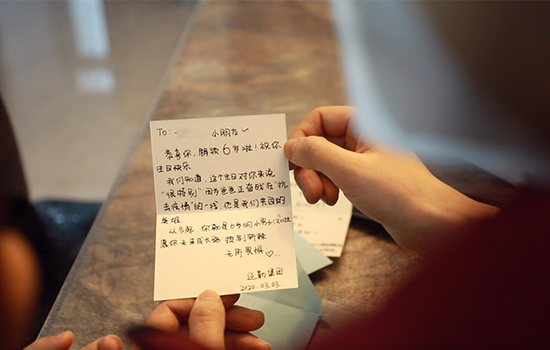 To: 小朋友
恭喜你,解锁6岁啦!祝你
生日快乐
我们知道,这个生日对你来说
"很特别"因为爸爸正奋战在"抗
击疫情"的一线,他是我们共同的
英雄
从今起,你就是6岁的小男子汉啦
愿你未来成长路
无所畏惧♡...
远勤集团
2020.03.03.